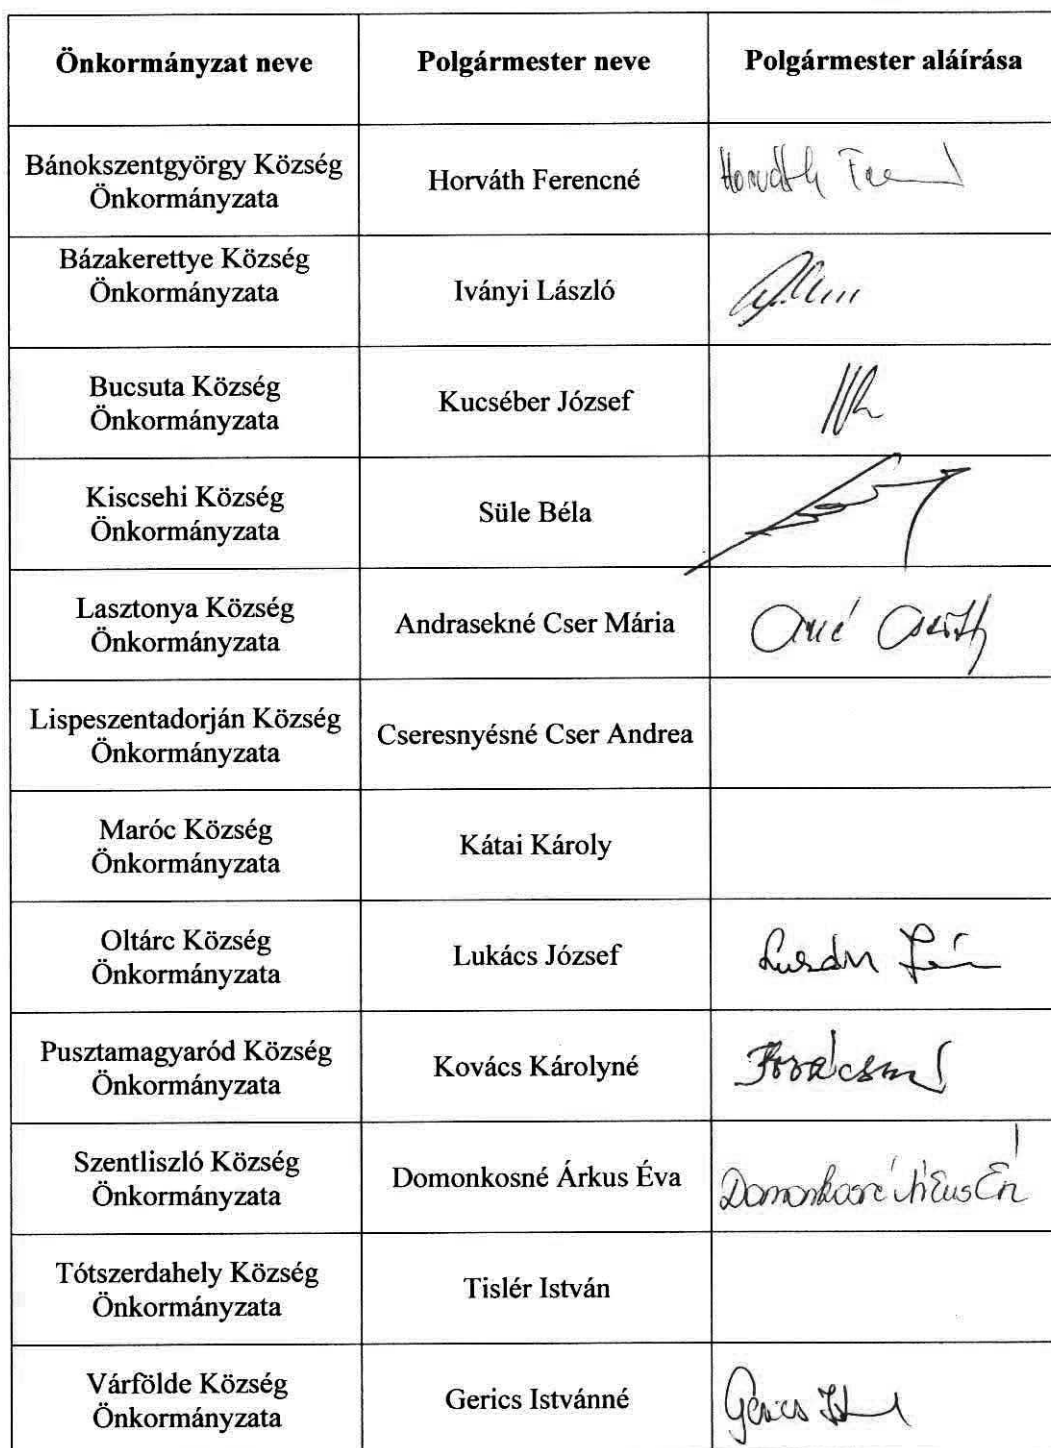 Önkormányzat neve
Polgármester neve
Polgármester aláírása
Bánokszentgyörgy Község
Önkormányzata
Horváth Ferencné
Horváth
Bázakerettye Község
Önkormányzata
Iványi László
Bucsuta Község
Önkormányzata
Kucséber József
Kiscsehi Község
Önkormányzata
Süle Béla
Lasztonya Község
Önkormányzata
Andrasekné Cser Mária
Lispeszentadorján Község
Önkormányzata
Cseresnyésné Cser Andrea
Maróc Község
Önkormányzata
Kátai Károly
Oltárc Község
Önkormányzata
Lukács József
Pusztamagyaród Község
Önkormányzata
Kovács Károlyné
Szentliszló Község
Önkormányzata
Domonkosné Árkus Éva
Domonkosné
Tótszerdahely Község
Önkormányzata
Tislér István
Várfölde Község
Önkormányzata
Gerics Istvánné
Gerics